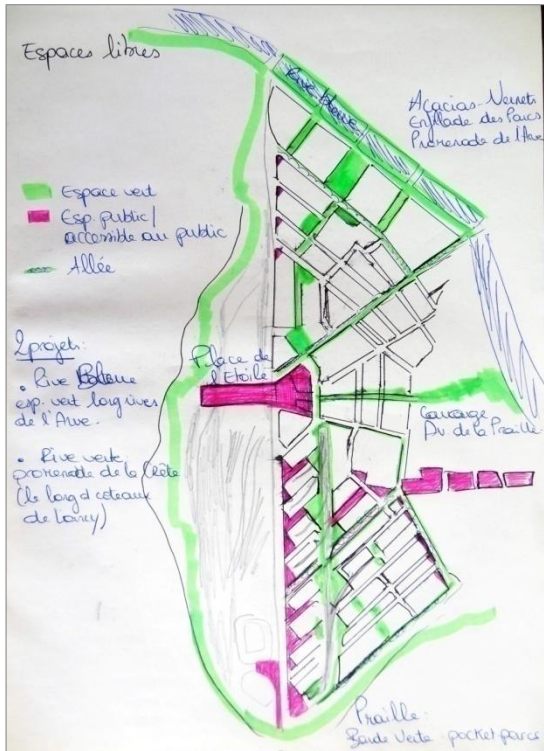 Espaces libres
Rive bleue
Acacias-Vernets
Enfilade des Parcs
Promenade de l'Arve
Espace vert
Esp. public/
accessible au public
Allée
2 projets:
• Rive Bleue
esp. vert long rives
de l'Arve.
• Rive verte
promenade de la Crête
(le long d coteaux
de Lancy)
Place de
l'Etoile
Carouge
Av. de la Praille
Praille:
Bande Verte - pocket parcs